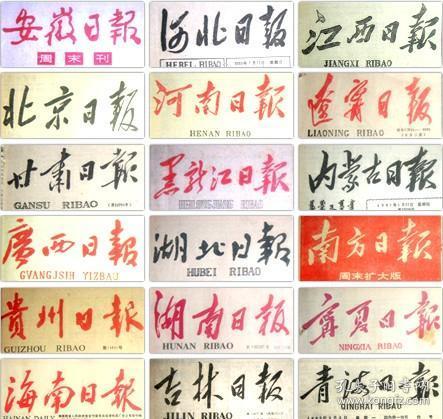 安徽日報
周末刊
河北日报
HEBEI RIBAO
江西日报
JIANGXI RIBAO
北京日报
河南日報
HENAN RIBAO
遼寧日報
LIAONING RIBAO
甘肃日報
GANSU RIBAO
黑龙江日报
HEILONGJIANG RIBAO
内蒙古日报
廣西日報
GVANGJSIH YIZBAU
湖北日報
HUBEI RIBAO
南方日報
周末扩大版
贵州日報
GUIZHOU RIBAO
湖南日报
HUNAN RIBAO
宁夏日报
NINGXIA RIBAO
海南日报
HAINAN DAILY
吉林日报
JILIN RIBAO
青海日报
QINGHAI RIBAO